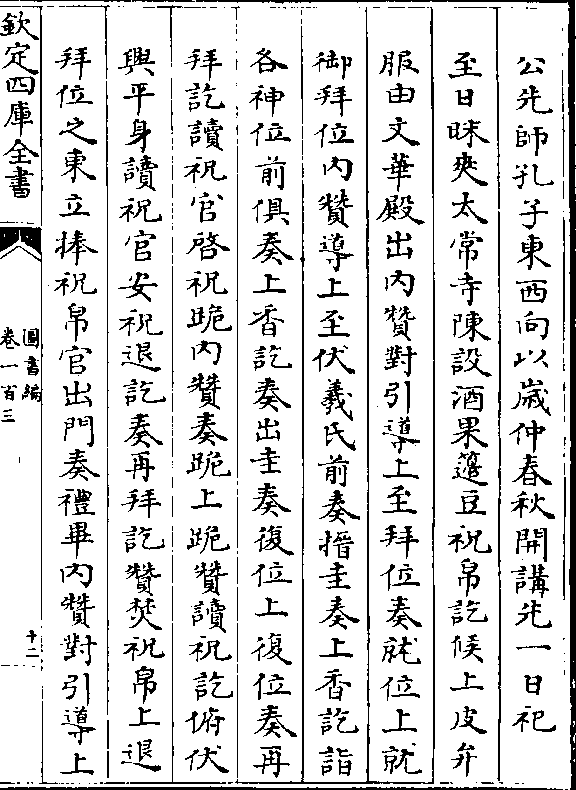 公先師孔子東西向以嵗仲春秋開講先一日祀
至日昧爽太常寺陳設酒果籩豆祝帛訖候上皮弁
服由文華殿出内贊對引導上至拜位奏就位上就
御拜位内贊導上至伏羲氏前奏搢圭奏上香訖詣
各神位前俱奏上香訖奏出圭奏復位上復位奏再
拜訖讀祝官啓祝跪内贊奏跪上跪贊讀祝訖俯伏
興平身讀祝官安祝退訖奏再拜訖贊焚祝帛上退
拜位之東立捧祝帛官出門奏禮畢内贊對引導上
欽定四庫全書
圖書編
卷一百三
十二